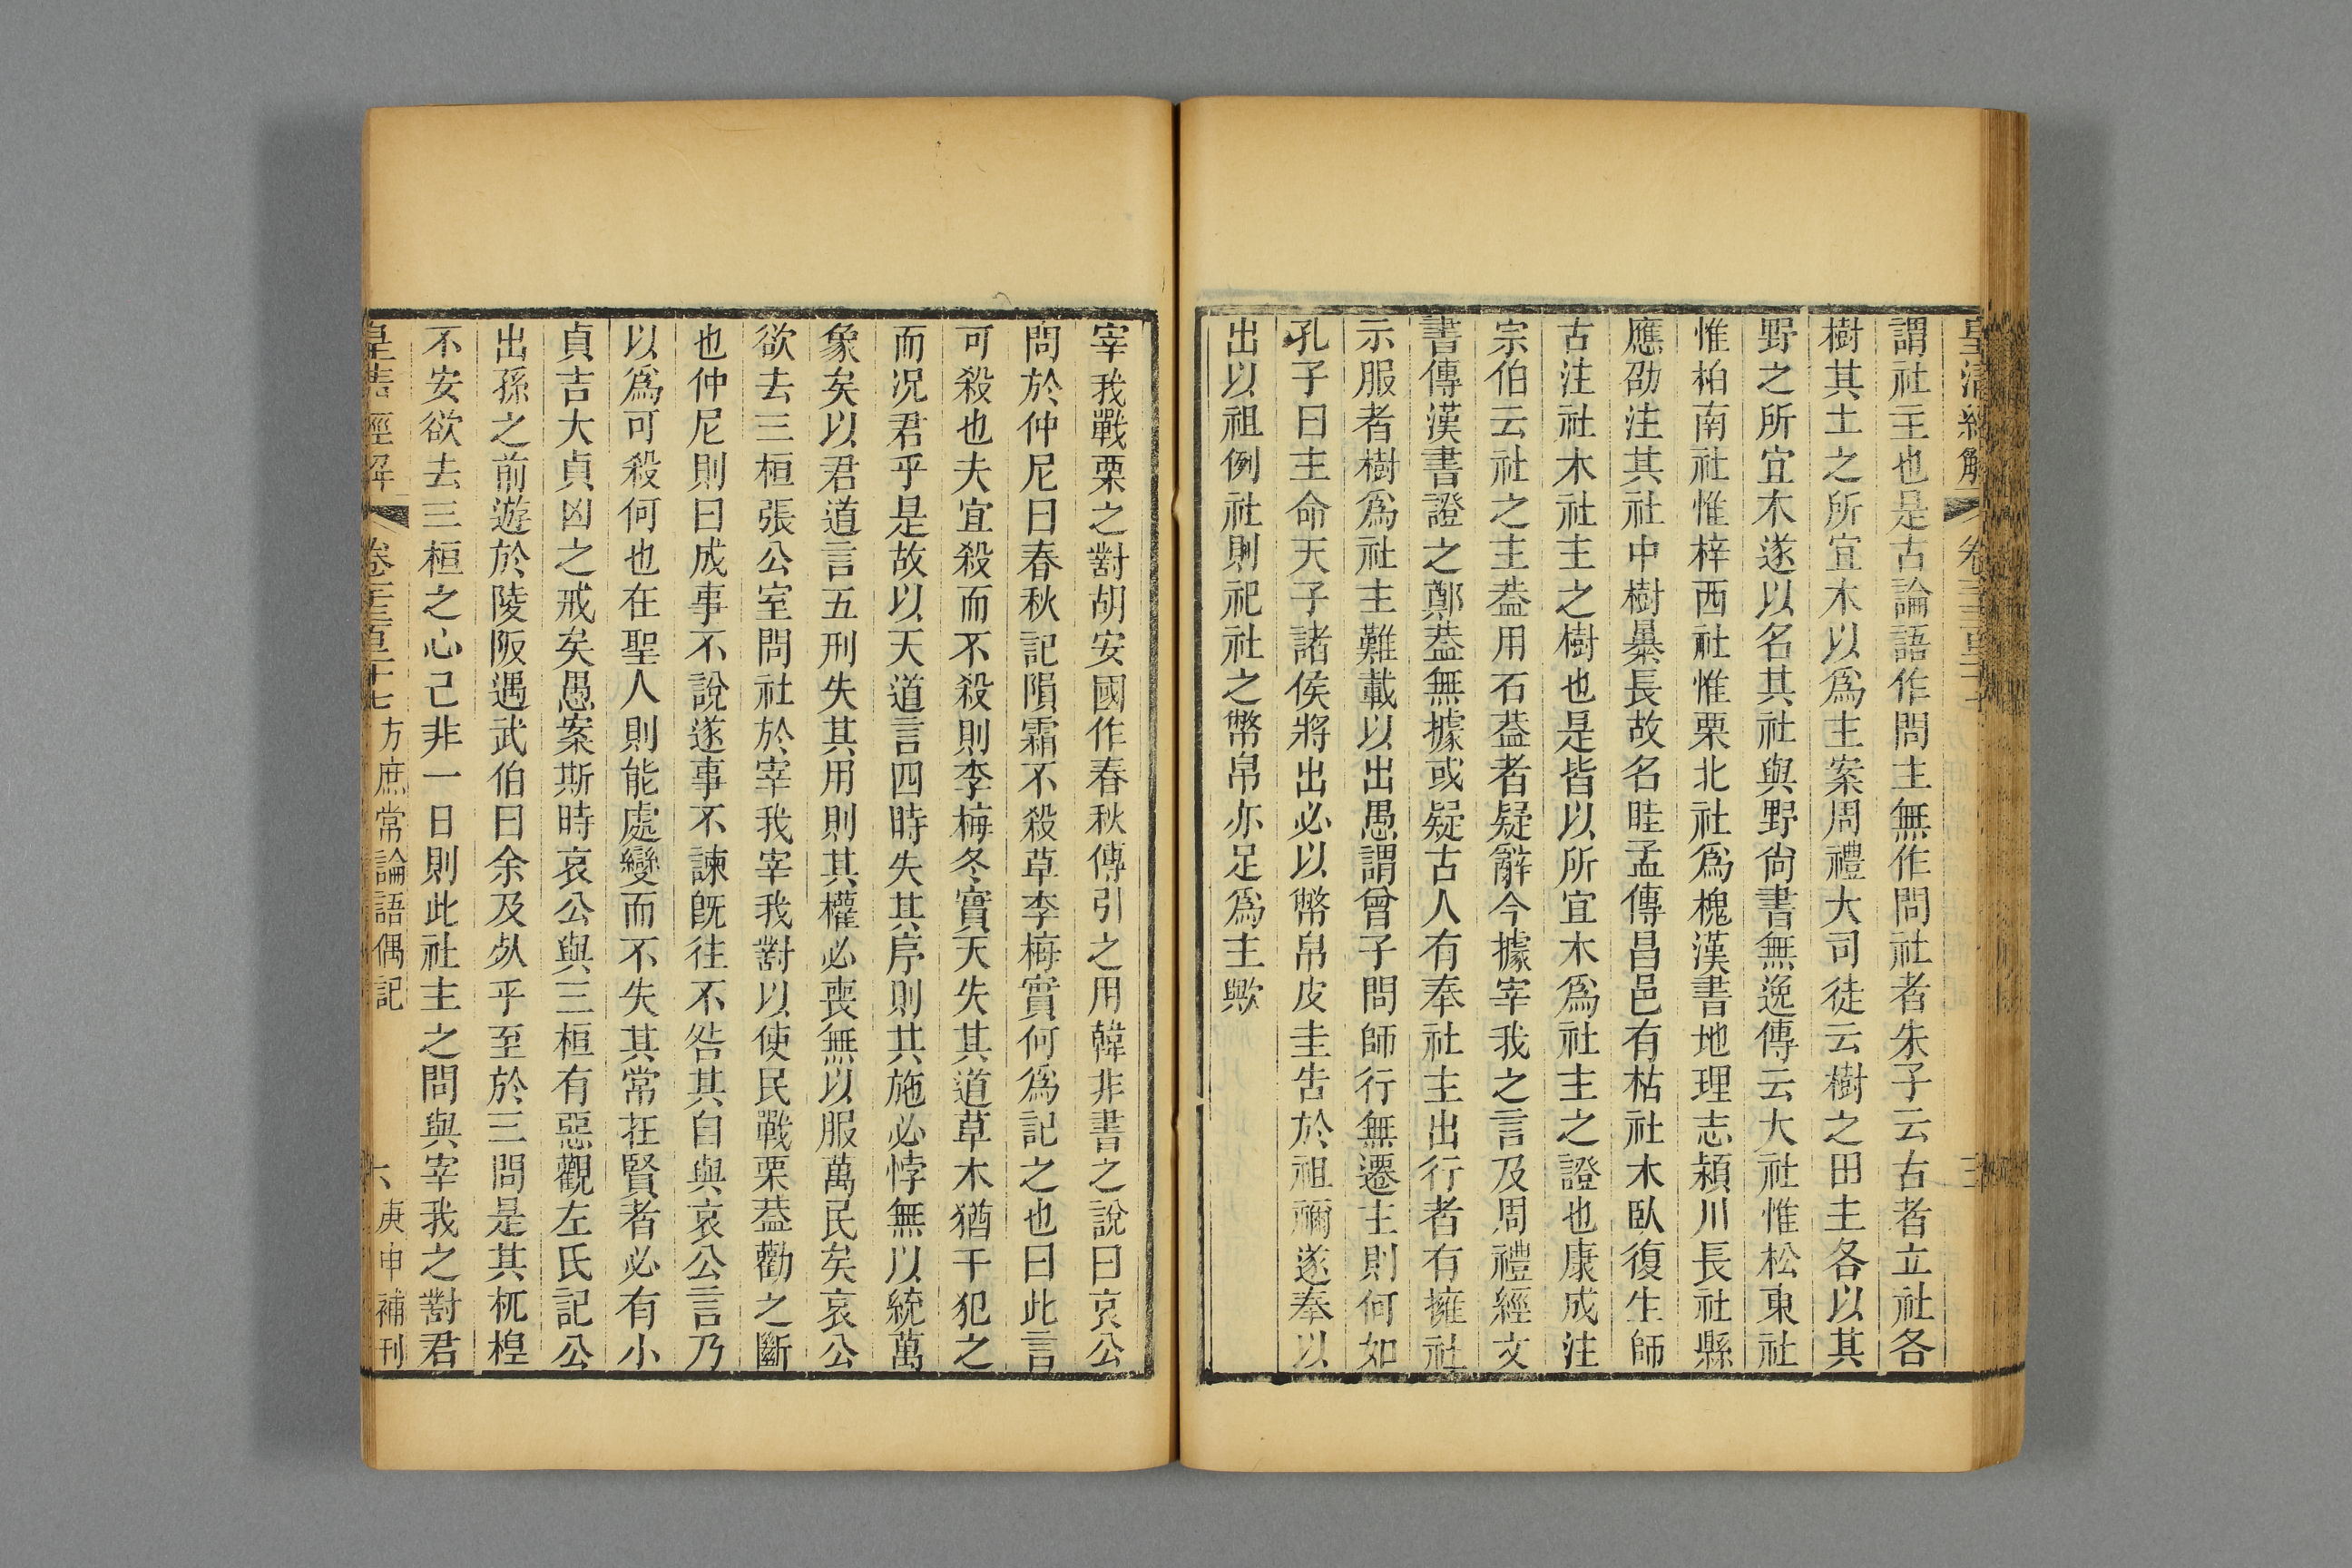 皇清經解 卷
謂社主也是古論語作問主無作問社者朱子云古者立社各
樹其土之所宜木以爲主案周禮大司徒云樹之田主各以其
野之所宜木遂以名其社與野尙書無逸傳云大社惟松東社
惟柏南社惟梓西社惟栗北社爲槐漢書地理志潁川長社縣
應劭注其社中樹暴長故名眭孟傳昌邑有枯社木臥復生師
古注社木社主之樹也是皆以所宜木爲社主之證也康成注
宗伯云社之主葢用石葢者疑辭今據宰我之言及周禮經文
書傳漢書證之鄭葢無據或疑古人有奉社主出行者有擁社
示服者樹爲社主難載以出愚謂曾子問師行無遷主則何如
孔子曰主命天子諸侯將出必以幣帛皮圭告於祖禰遂奉以
出以祖例社則祀社之幣帛亦足爲主歟
宰我戰栗之對胡安國作春秋傳引之用韓非書之說曰哀公
問於仲尼曰春秋記隕霜不殺草李梅實何爲記之也曰此言
可殺也夫宜殺而不殺則李梅冬實天失其道草木猶干犯之
而况君乎是故以天道言四時失其序則其施必悖無以統萬
象矣以君道言五刑失其用則其權必喪無以服萬民矣哀公
欲去三桓張公室問社於宰我宰我對以使民戰栗葢勸之斷
也仲尼則曰成事不說遂事不諫旣往不咎其自與哀公言乃
以爲可殺何也在聖人則能處變而不失其常在賢者必有小
貞吉大貞凶之戒矣愚案斯時哀公與三桓有惡觀左氏記公
出孫之前遊於陵阪遇武伯曰余及死乎至於三問是其杌楻
不安欲去三桓之心已非一日則此社主之問與宰我之對君
皇淸經解 卷三百二十七 方庶常論語偶記 六 庚申補刊